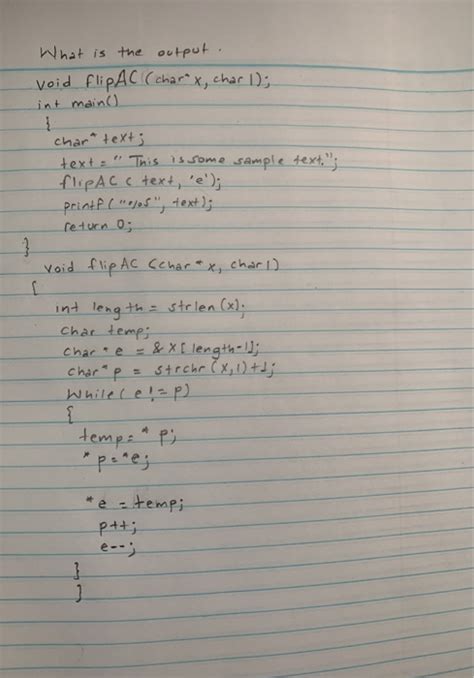 What is the output.
void flipAC (char* x, char l);
int main()
{
char* text;
text = " This is some sample text.";
flipAC ( text, 'e');
printf ("%s", text);
return 0;
}
void flipAC (char* x, char l)
{
int length = strlen (x);
char temp;
char * e = & x[ length-1];
char* p = strchr (x,l)+1;
While( e != p)
{
temp = * p;
* p = *e;
*e = temp;
p++;
e--;
}
}